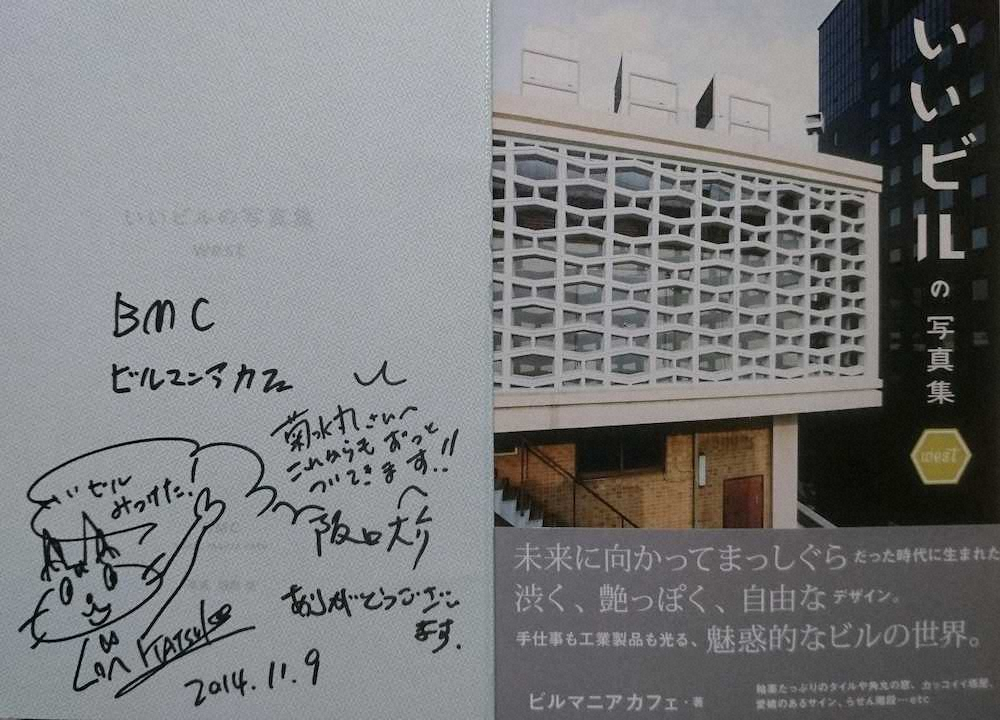 いいビルの写真集
west
BMC
ビルマニアカフェ
菊水丸さんへ
これからもずっと
ついてきます!!
いいビル
みつけた!
阪口大介
ありがとうござい
ます.
2014.11.9
いいビルの写真集
west
未来に向かってまっしぐらだった時代に生まれた
渋く、艶っぽく、自由なデザイン。
手仕事も工業製品も光る、魅惑的なビルの世界。
ビルマニアカフェ・著
釉薬たっぷりのタイルや角丸の窓、カッコイイ塔屋、
愛嬌のあるサイン、らせん階段…etc